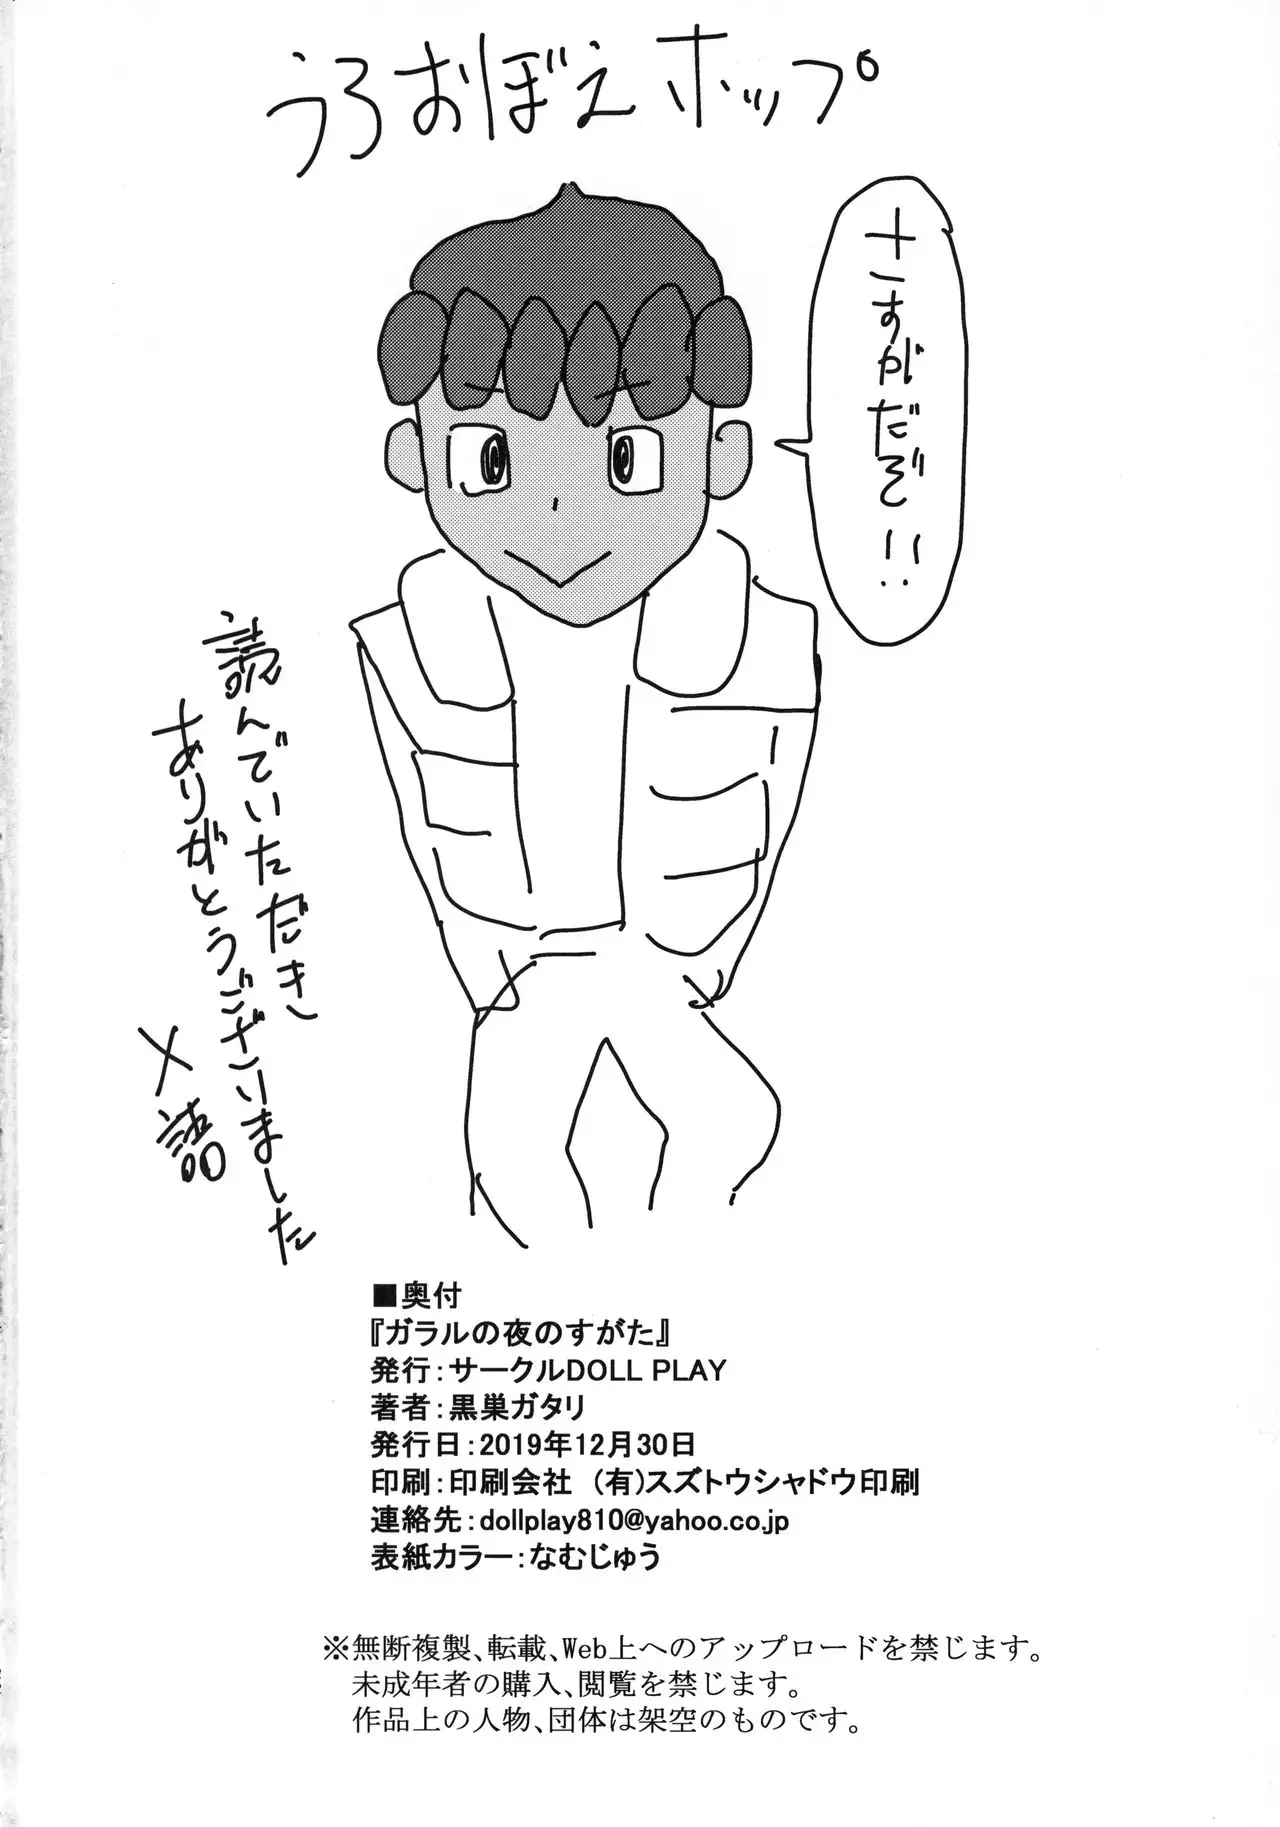 うろおぼえホップ
さすがだぞ!!
読んでいただき
ありがとうございました
〆語
■奥付
『ガラルの夜のすがた』
発行：サークルDOLL PLAY
著者：黒巣ガタリ
発行日：2019年12月30日
印刷：印刷会社　(有)スズトウシャドウ印刷
連絡先：dollplay810@yahoo.co.jp
表紙カラー：なむじゅう
※無断複製、転載、Web上へのアップロードを禁じます。
未成年者の購入、閲覧を禁じます。
作品上の人物、団体は架空のものです。